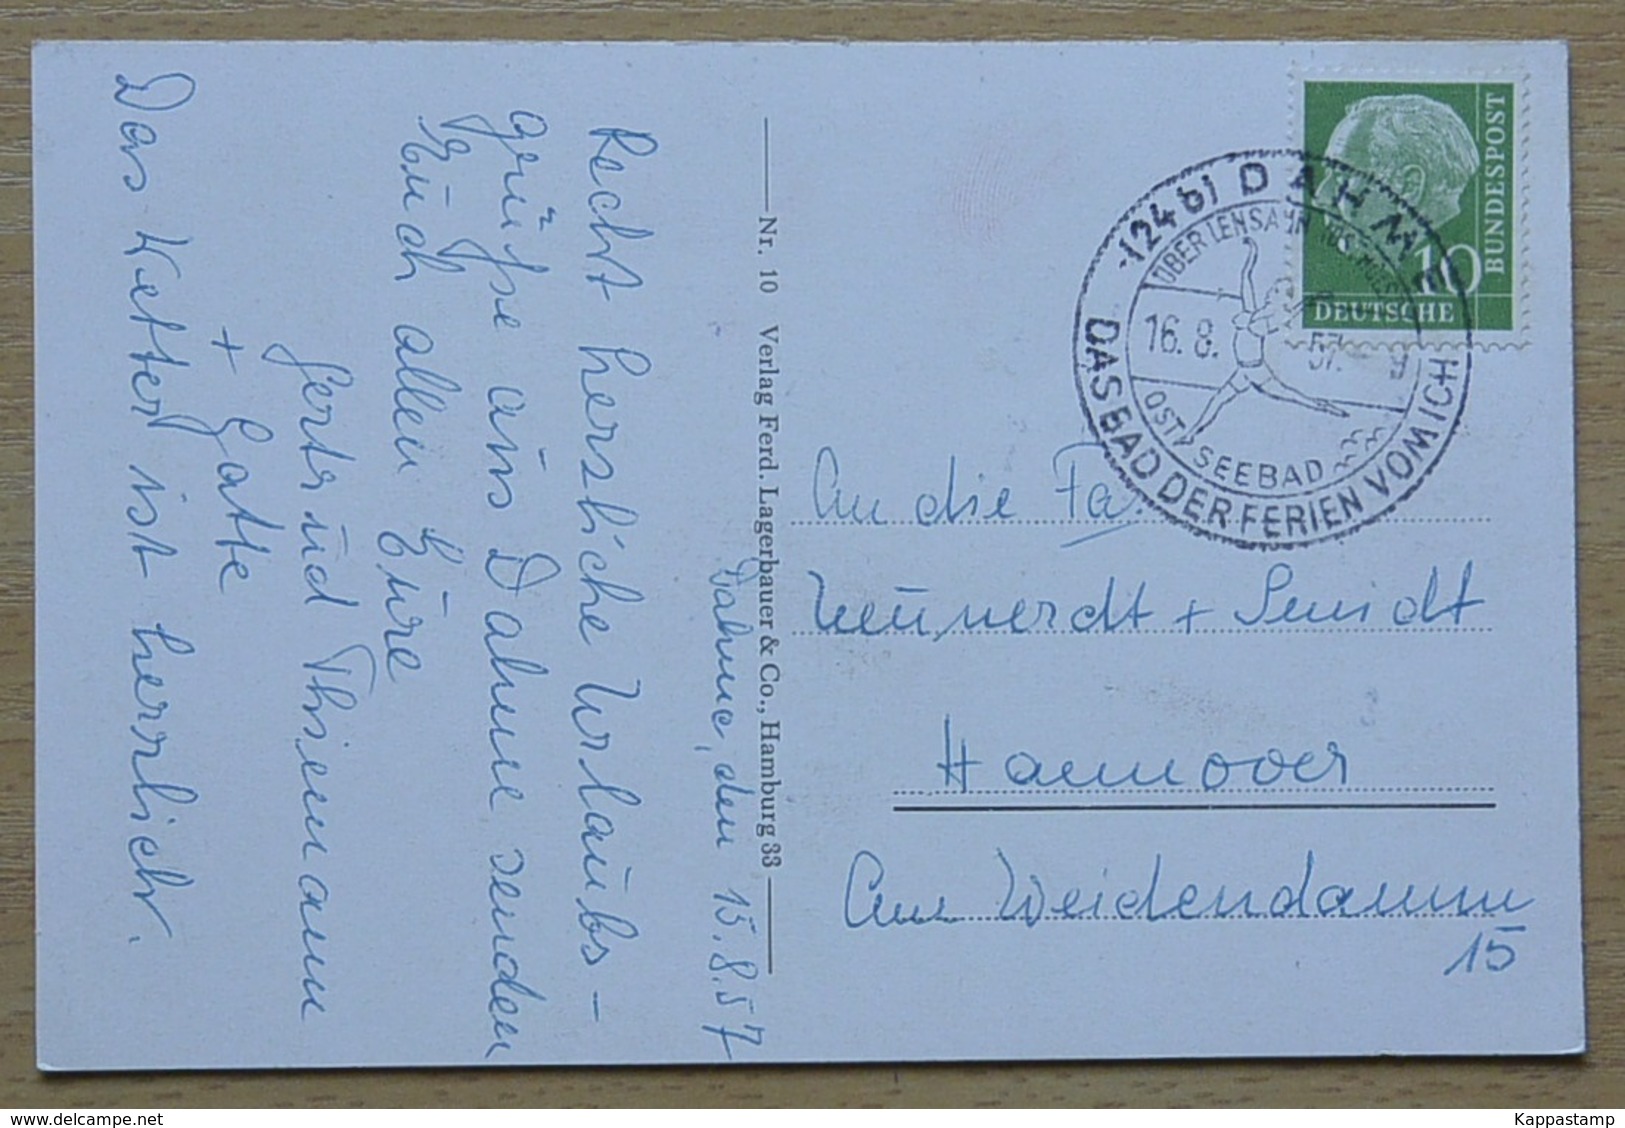 Dahme, den 15.8.57
Recht herzliche Urlaubs-
grüße aus Dahme senden
Euch allen Eure
Gertrud Thiemann
+ Gatte
Das Wetter ist herrlich.
Nr. 10 Verlag Ferd. Lagerbauer & Co., Hamburg 33
DEUTSCHE
BUNDESPOST
10
(24b) DAHME
ÜBER LENSAHN
16.8.57
OSTSEEBAD
DAS BAD DER FERIEN VOM ICH
An die Fa.
Neunerdt + Smidt
Hannover
Am Weidendamm
15
delcampe.net
Kappastamp